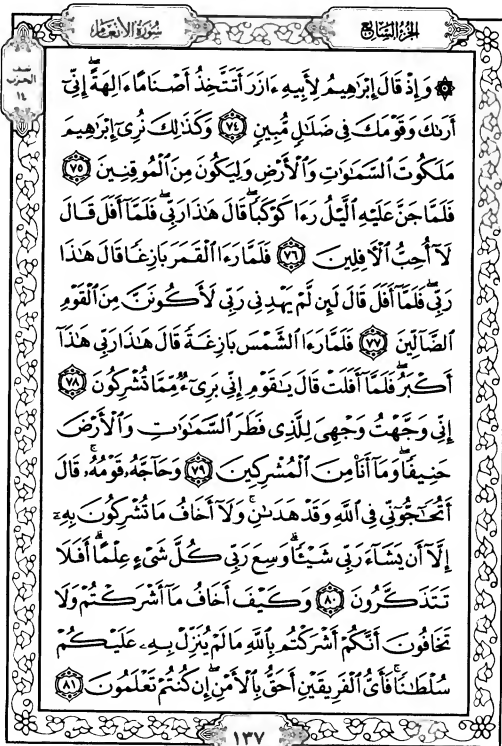 الجزء السابع
سورة الأنعام
نصف
الحزب
١٤
۞ وَإِذْ قَالَ إِبْرَٰهِيمُ لِأَبِيهِ ءَازَرَ أَتَتَّخِذُ أَصْنَامًا ءَالِهَةً إِنِّىٓ
أَرَىٰكَ وَقَوْمَكَ فِى ضَلَٰلٍ مُّبِينٍ ٧٤ وَكَذَٰلِكَ نُرِىٓ إِبْرَٰهِيمَ
مَلَكُوتَ ٱلسَّمَٰوَٰتِ وَٱلْأَرْضِ وَلِيَكُونَ مِنَ ٱلْمُوقِنِينَ ٧٥
فَلَمَّا جَنَّ عَلَيْهِ ٱلَّيْلُ رَءَا كَوْكَبًا قَالَ هَٰذَا رَبِّى فَلَمَّآ أَفَلَ قَالَ
لَآ أُحِبُّ ٱلْءَافِلِينَ ٧٦ فَلَمَّا رَءَا ٱلْقَمَرَ بَازِغًا قَالَ هَٰذَا
رَبِّى فَلَمَّآ أَفَلَ قَالَ لَئِن لَّمْ يَهْدِنِى رَبِّى لَأَكُونَنَّ مِنَ ٱلْقَوْمِ
ٱلضَّآلِّينَ ٧٧ فَلَمَّا رَءَا ٱلشَّمْسَ بَازِغَةً قَالَ هَٰذَا رَبِّى هَٰذَآ
أَكْبَرُ فَلَمَّآ أَفَلَتْ قَالَ يَٰقَوْمِ إِنِّى بَرِىٓءٌ مِّمَّا تُشْرِكُونَ ٧٨
إِنِّى وَجَّهْتُ وَجْهِىَ لِلَّذِى فَطَرَ ٱلسَّمَٰوَٰتِ وَٱلْأَرْضَ
حَنِيفًا وَمَآ أَنَا۠ مِنَ ٱلْمُشْرِكِينَ ٧٩ وَحَآجَّهُۥ قَوْمُهُۥ قَالَ
أَتُحَٰٓجُّوٓنِّى فِى ٱللَّهِ وَقَدْ هَدَىٰنِ وَلَآ أَخَافُ مَا تُشْرِكُونَ بِهِۦٓ
إِلَّآ أَن يَشَآءَ رَبِّى شَيْـًٔا وَسِعَ رَبِّى كُلَّ شَىْءٍ عِلْمًا أَفَلَا
تَتَذَكَّرُونَ ٨٠ وَكَيْفَ أَخَافُ مَآ أَشْرَكْتُمْ وَلَا
تَخَافُونَ أَنَّكُمْ أَشْرَكْتُم بِٱللَّهِ مَا لَمْ يُنَزِّلْ بِهِۦ عَلَيْكُمْ
سُلْطَٰنًا فَأَىُّ ٱلْفَرِيقَيْنِ أَحَقُّ بِٱلْأَمْنِ إِن كُنتُمْ تَعْلَمُونَ ٨١
١٣٧